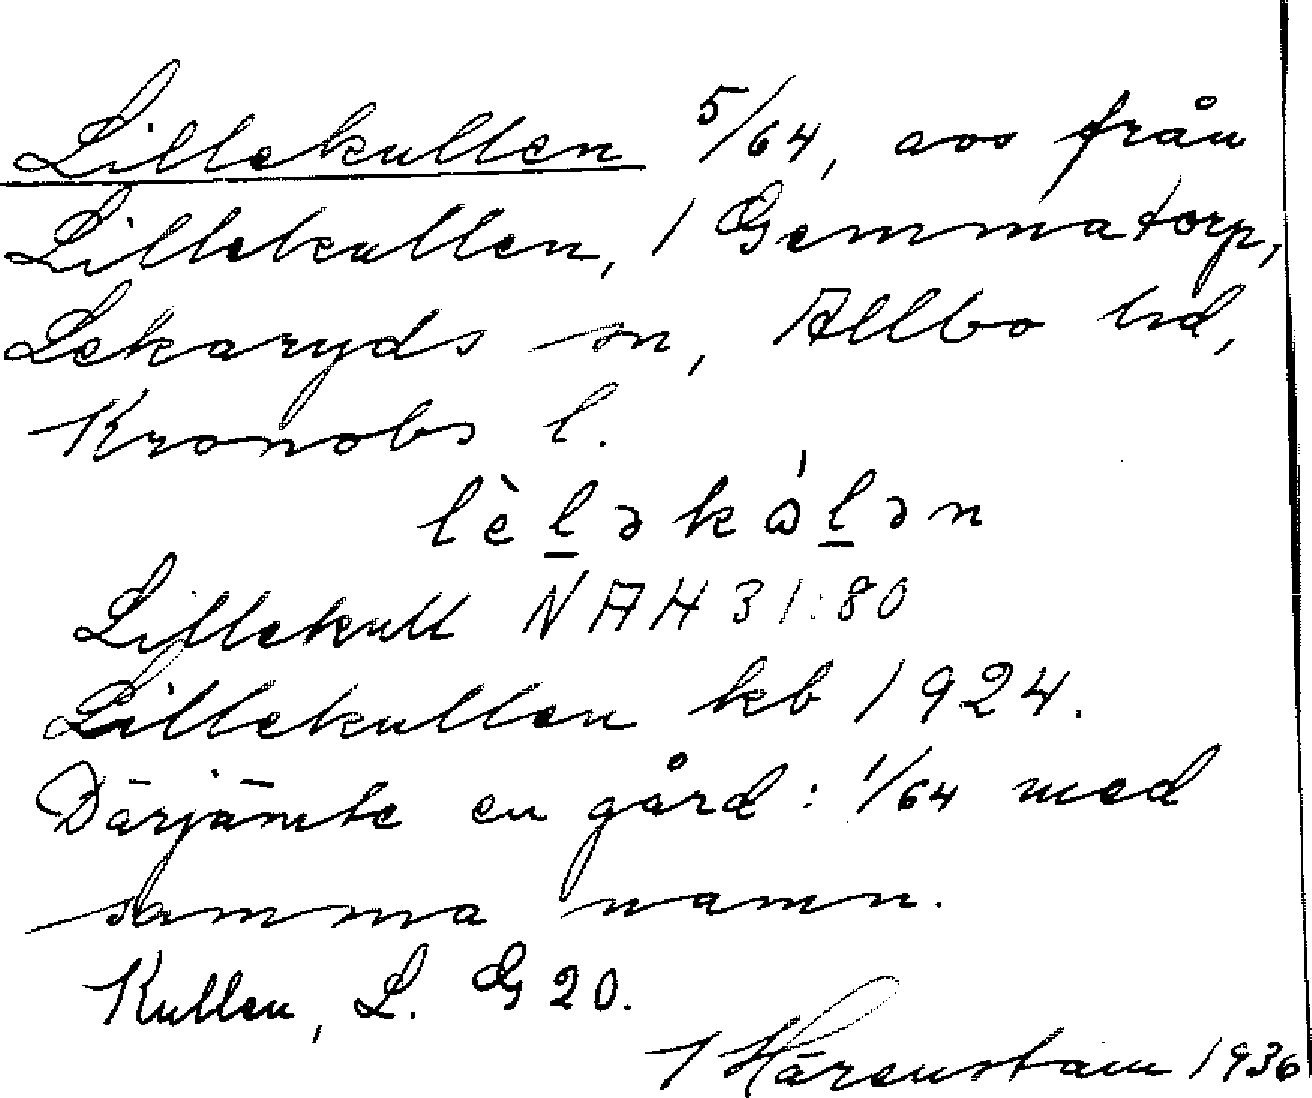 Lillekullen 5/64, avs från
Lillekullen, 1 Gemmatorp,
Lekaryds sn, Allbo hd,
Kronobs l.
lèlǝkålǝn
Lillekull NAH 31:80
Lillekullen kb 1924.
Därjämte en gård: 1/64 med
samma namn.
Kullen, L. G 20.
Härenstam 1936